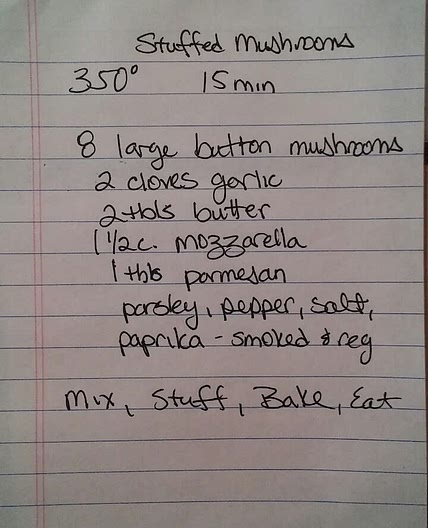 Stuffed Mushrooms
350° 15 min
8 large button mushrooms
2 cloves garlic
2 tbls butter
1 1/2 c. mozzarella
1 tbls parmesan
parsley, pepper, salt,
paprika - smoked & reg
Mix, Stuff, Bake, Eat